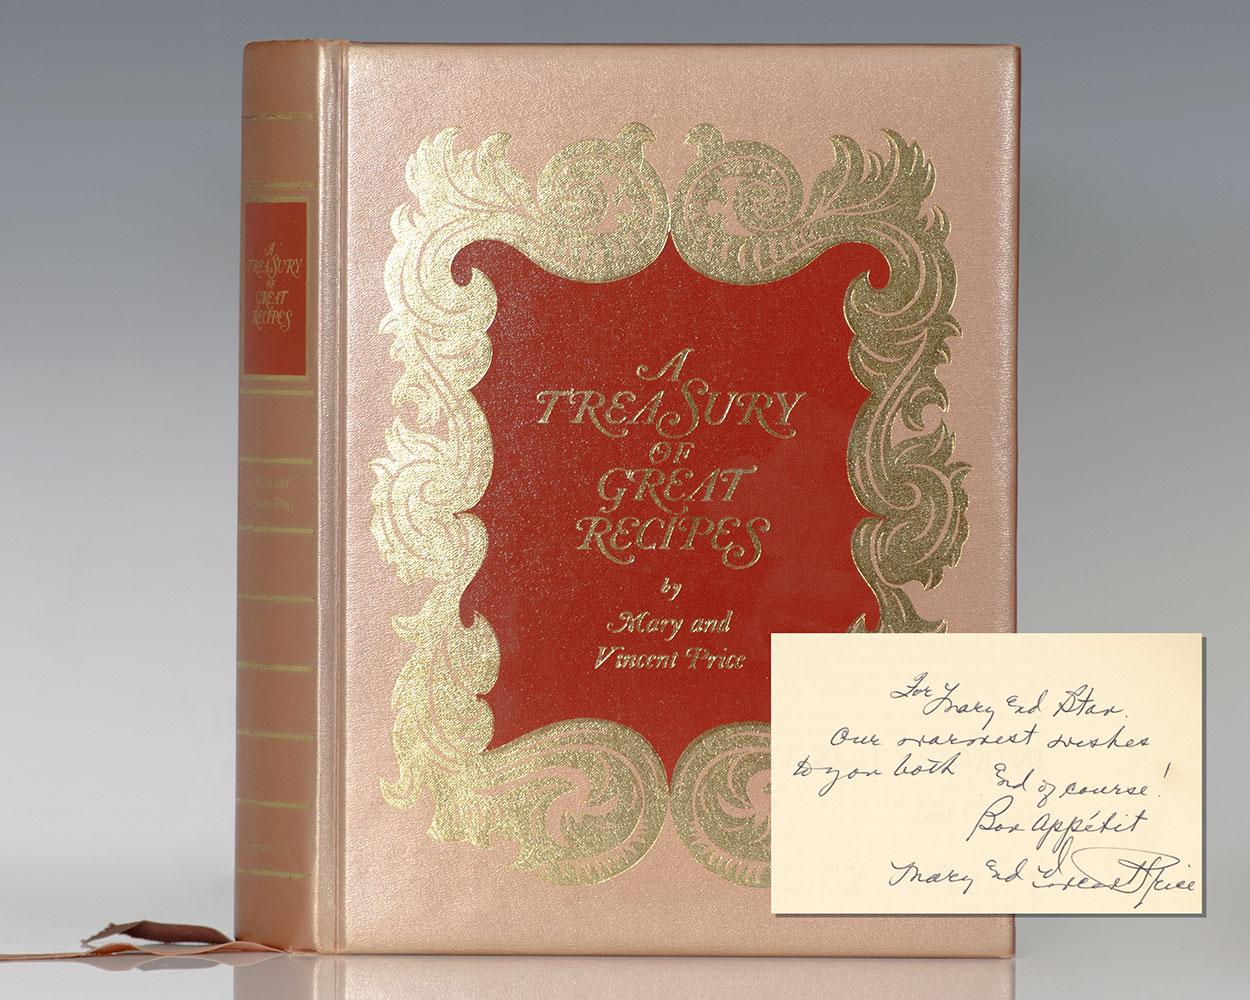 A
TREASURY
OF
GREAT
RECIPES
Mary and
Vincent Price
A
TREASURY
OF
GREAT
RECIPES
by
Mary and
Vincent Price
For Mary And Stan.
Our warmest wishes
to you both And of course!
Bon Appétit
Mary And Vincent Price